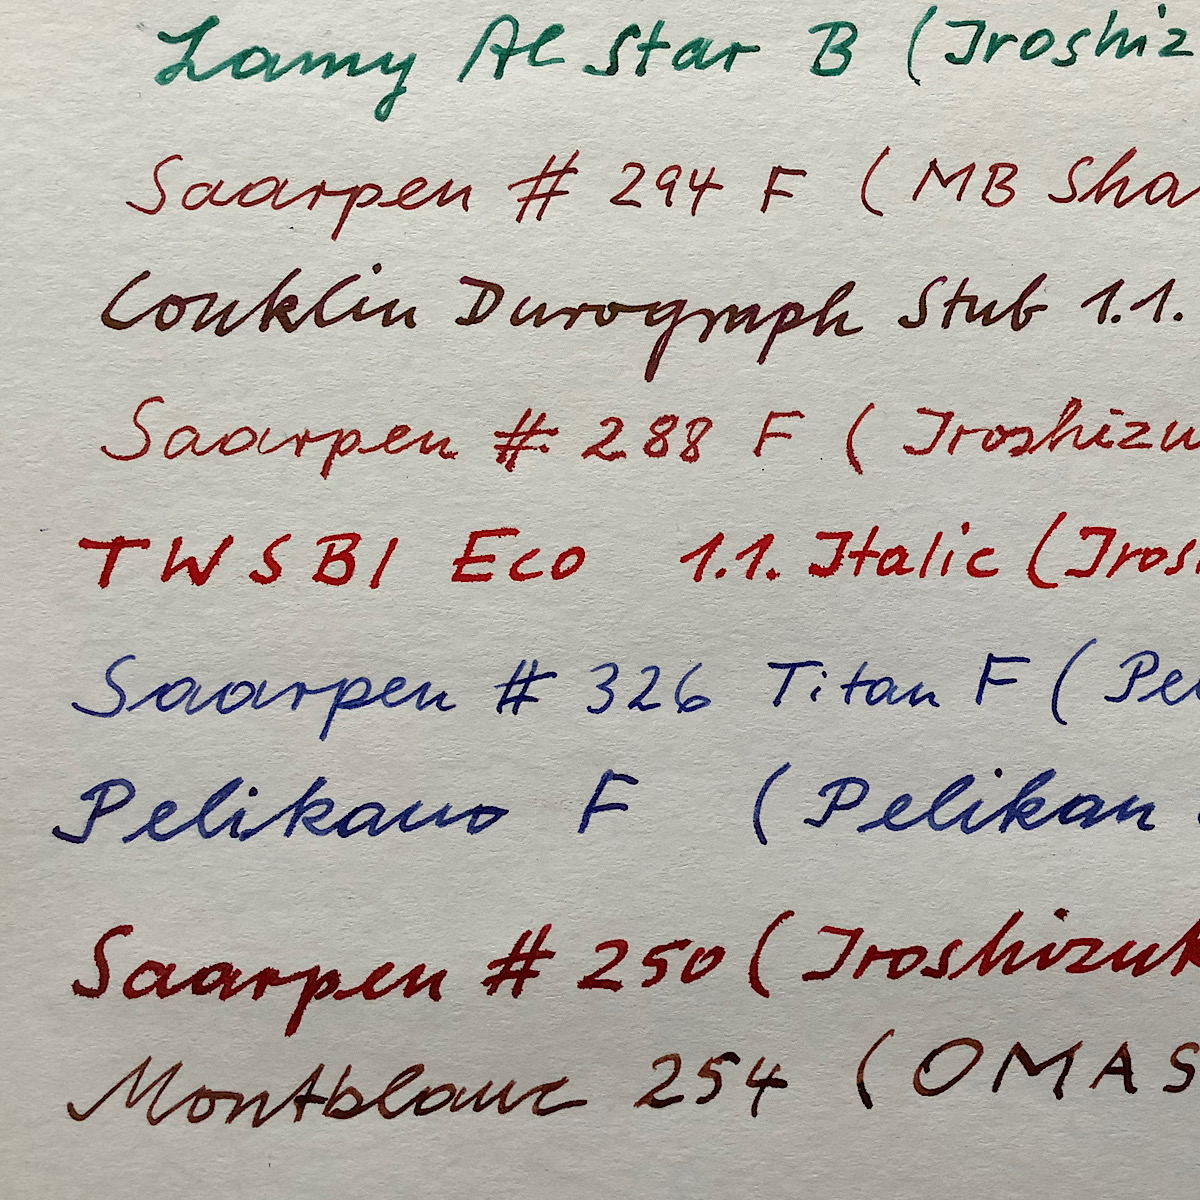 Lamy Al Star B (Iroshiz
Saarpen # 294 F (MB Sha
Conklin Durograph Stub 1.1.
Saarpen # 288 F (Iroshizu
TWSBI Eco 1.1. Italic (Iros
Saarpen # 326 Titan F (Pe
Pelikano F (Pelikan
Saarpen # 250 (Iroshizuk
Montblanc 254 (OMAS